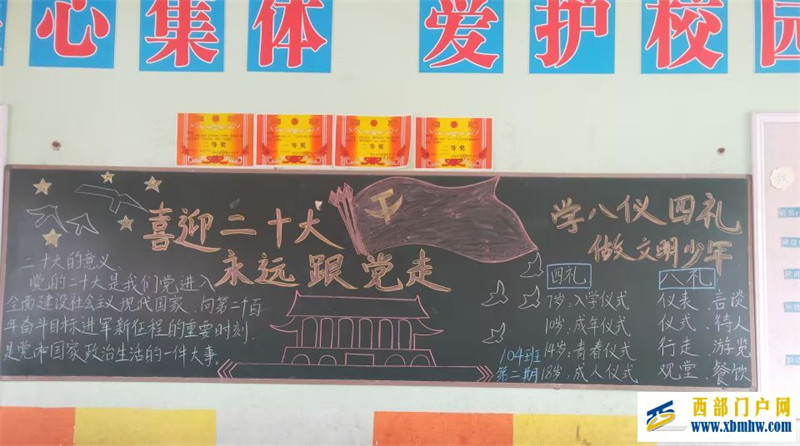 心集体 爱护校园
等奖
等奖
等奖
等奖
喜迎二十大
永远跟党走
二十大的意义
党的二十大是我们党进入
全面建设社会主义现代国家、向第二个百
年奋斗目标进军新征程的重要时刻,
是党和国家政治生活的一件大事。
学八仪四礼
做文明少年
四礼
7岁:入学仪式
10岁:成年仪式
14岁:青春仪式
18岁:成人仪式
八礼
仪表、言谈
仪式、待人
行走、游览
观堂、餐饮
104班
第二期
西部门户网
www.xbmhw.com